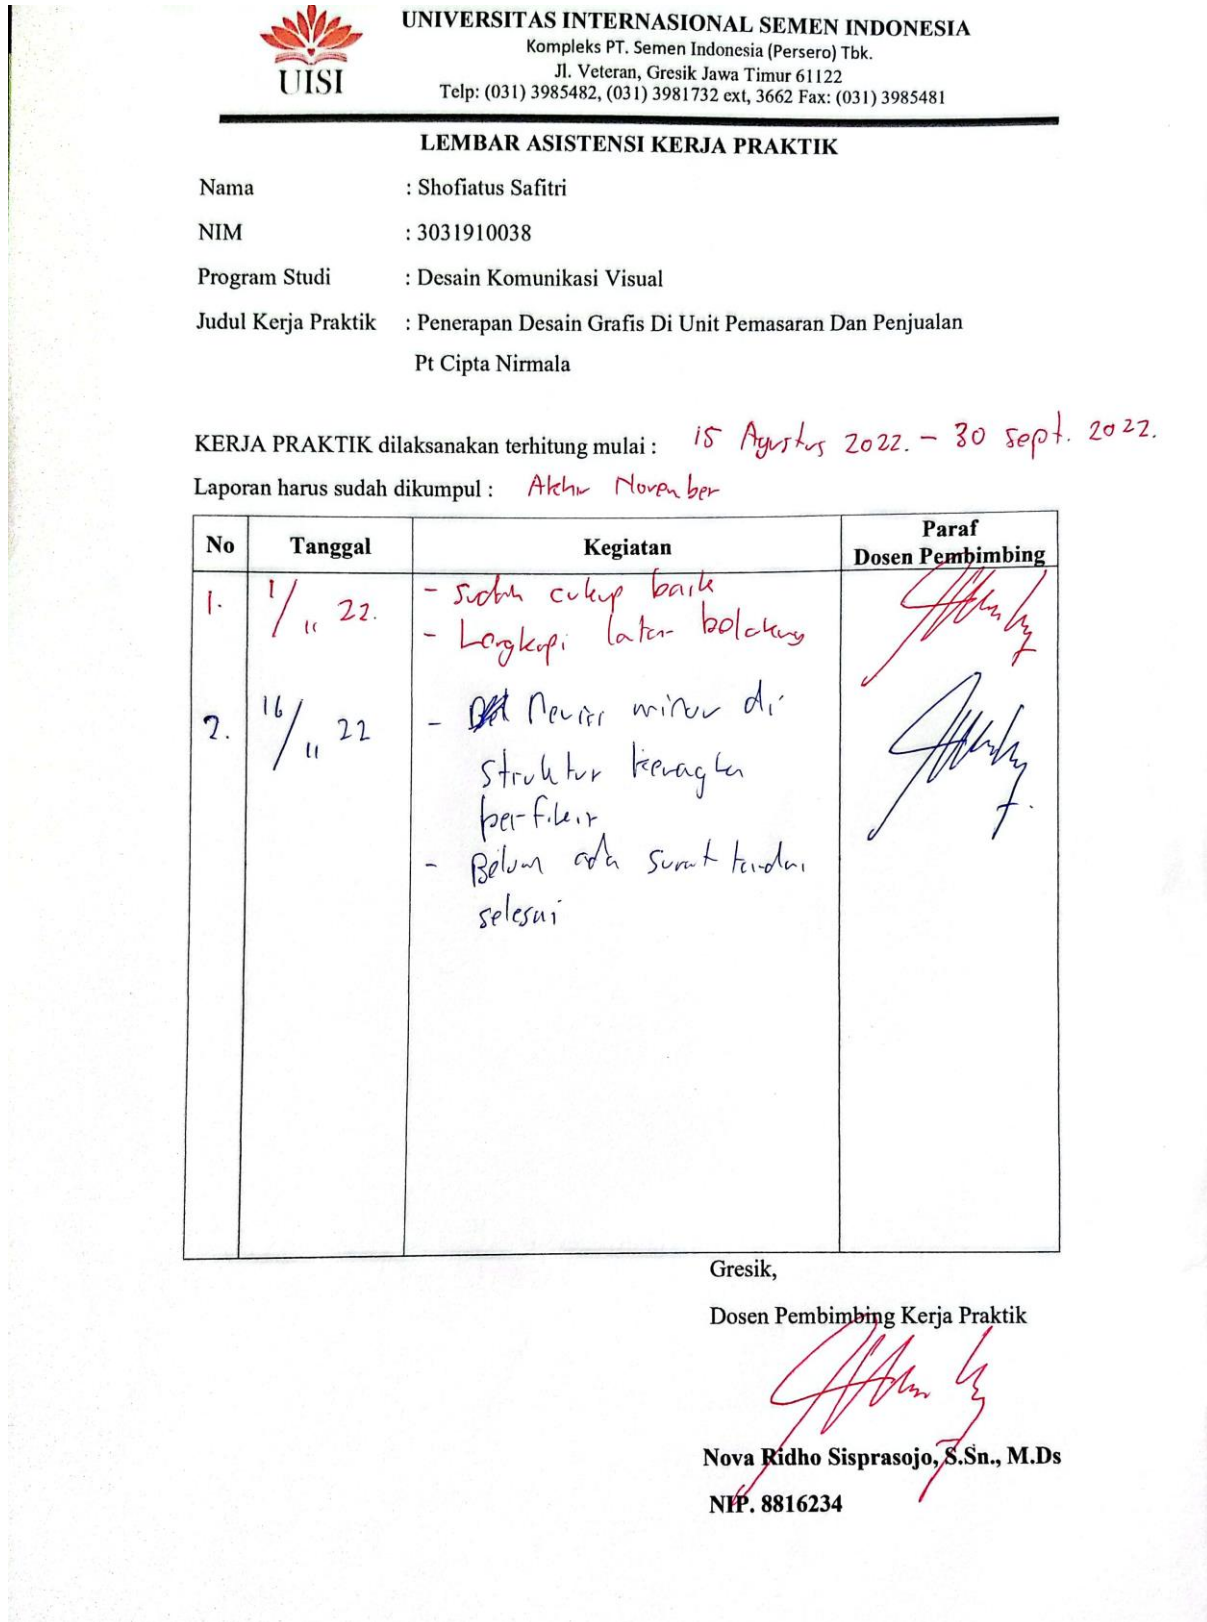 UISI
UNIVERSITAS INTERNASIONAL SEMEN INDONESIA
Kompleks PT. Semen Indonesia (Persero) Tbk.
Jl. Veteran, Gresik Jawa Timur 61122
Telp: (031) 3985482, (031) 3981732 ext, 3662 Fax: (031) 3985481
LEMBAR ASISTENSI KERJA PRAKTIK
Nama : Shofiatus Safitri
NIM : 3031910038
Program Studi : Desain Komunikasi Visual
Judul Kerja Praktik : Penerapan Desain Grafis Di Unit Pemasaran Dan Penjualan
Pt Cipta Nirmala
KERJA PRAKTIK dilaksanakan terhitung mulai : 15 Agustus 2022. - 30 sept. 2022.
Laporan harus sudah dikumpul : Akhir November
No Tanggal Kegiatan Paraf
Dosen Pembimbing
1. 1/11 22. - Sudah cukup baik
- Lengkapi latar belakang
2. 16/11 22 - Revisi minor di
struktur kerangka
berfikir
- Belum ada surat tanda
selesai
Gresik,
Dosen Pembimbing Kerja Praktik
Nova Ridho Sisprasojo, S.Sn., M.Ds
NIP. 8816234